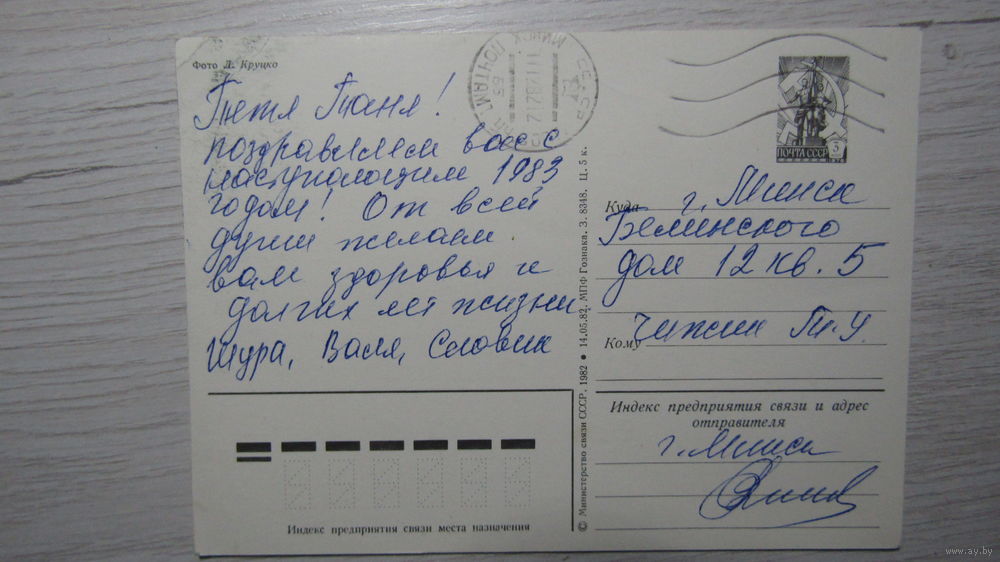 Фото Л. Круцко
Тетя Таня!
поздравляем вас с
наступающим 1983
годом! От всей
души желаем
вам здоровья и
долгих лет жизни
Шура, Валя, Славик
МИНСК ПОЧТАМТ
ПОЧТА СССР
Куда г. Минск
Белинского
дом 12 кв. 5
Кому
Индекс предприятия связи и адрес
отправителя
г. Минск
Индекс предприятия связи места назначения
© Министерство связи СССР, 1982 ● 14.05.82. МПФ Гознака. З. 8348. Ц. 5 к.
www.ay.by